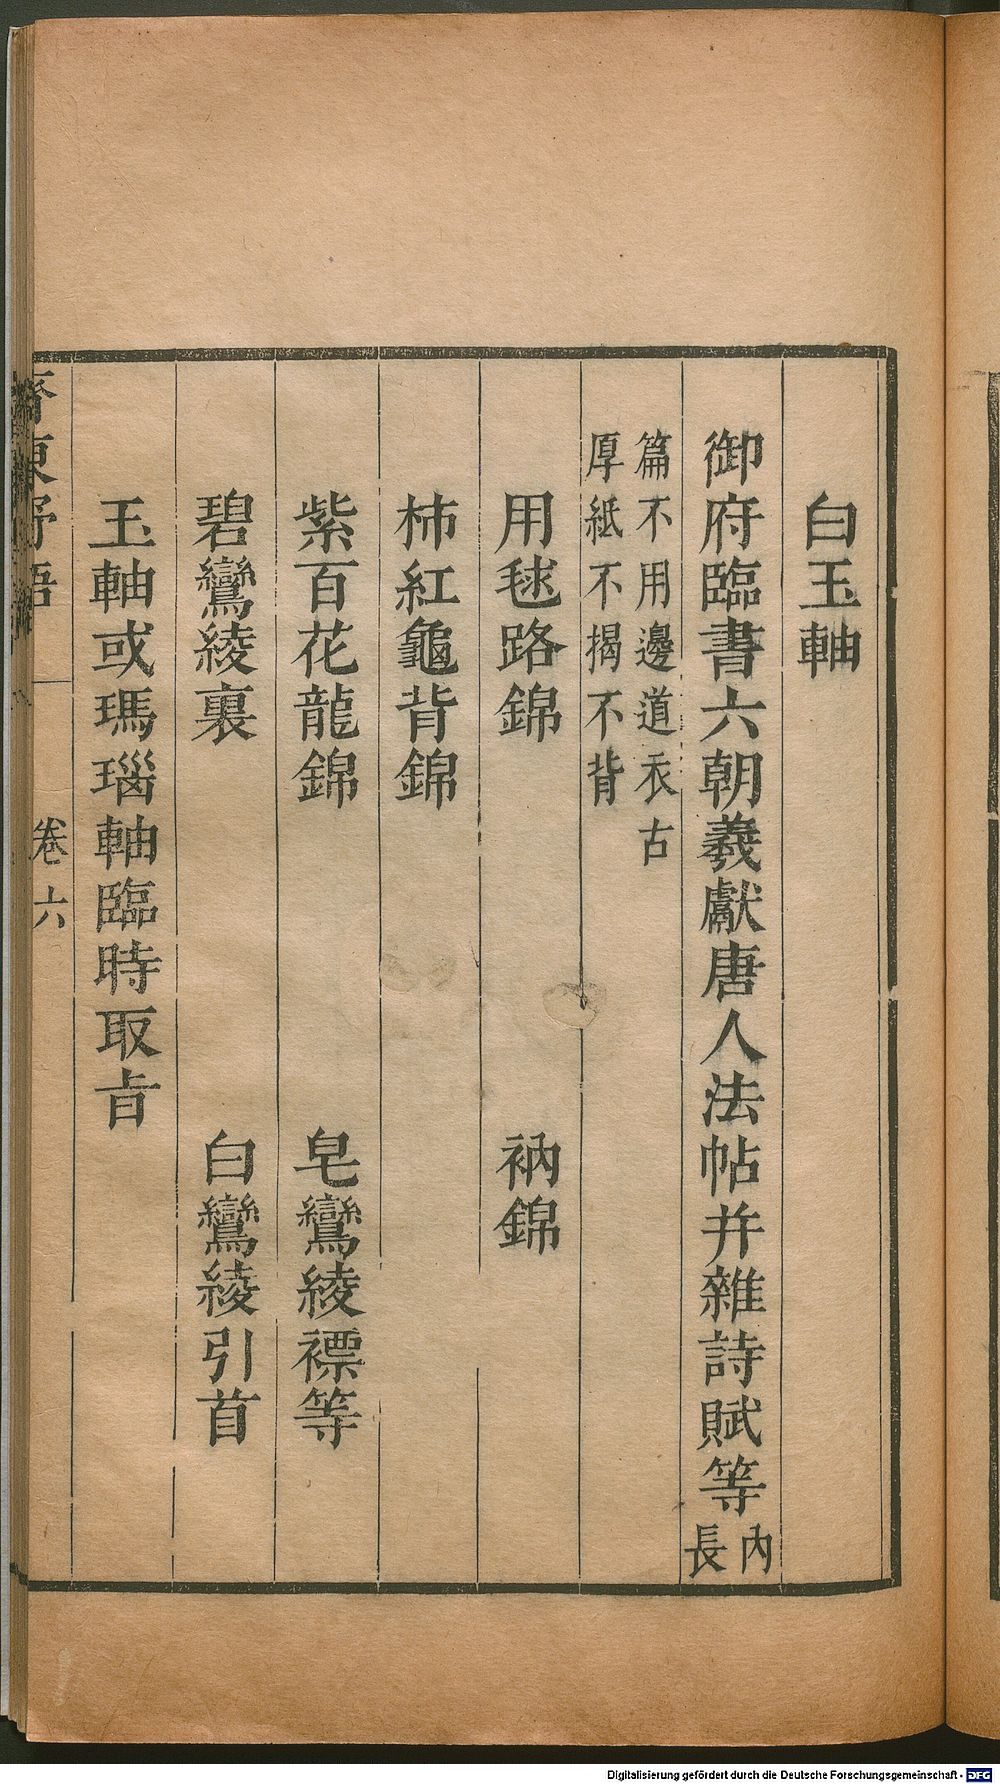 白玉軸
御府臨書六朝羲獻唐人法帖并雜詩賦等內長
篇不用邊道衣古
厚紙不揭不背
用毬路錦 衲錦
柿紅龜背錦
紫百花龍錦 皂鸞綾褾等
碧鸞綾裏 白鸞綾引首
玉軸或瑪瑙軸臨時取旨
齊東野語 卷六
Digitalisierung gefördert durch die Deutsche Forschungsgemeinschaft - DFG